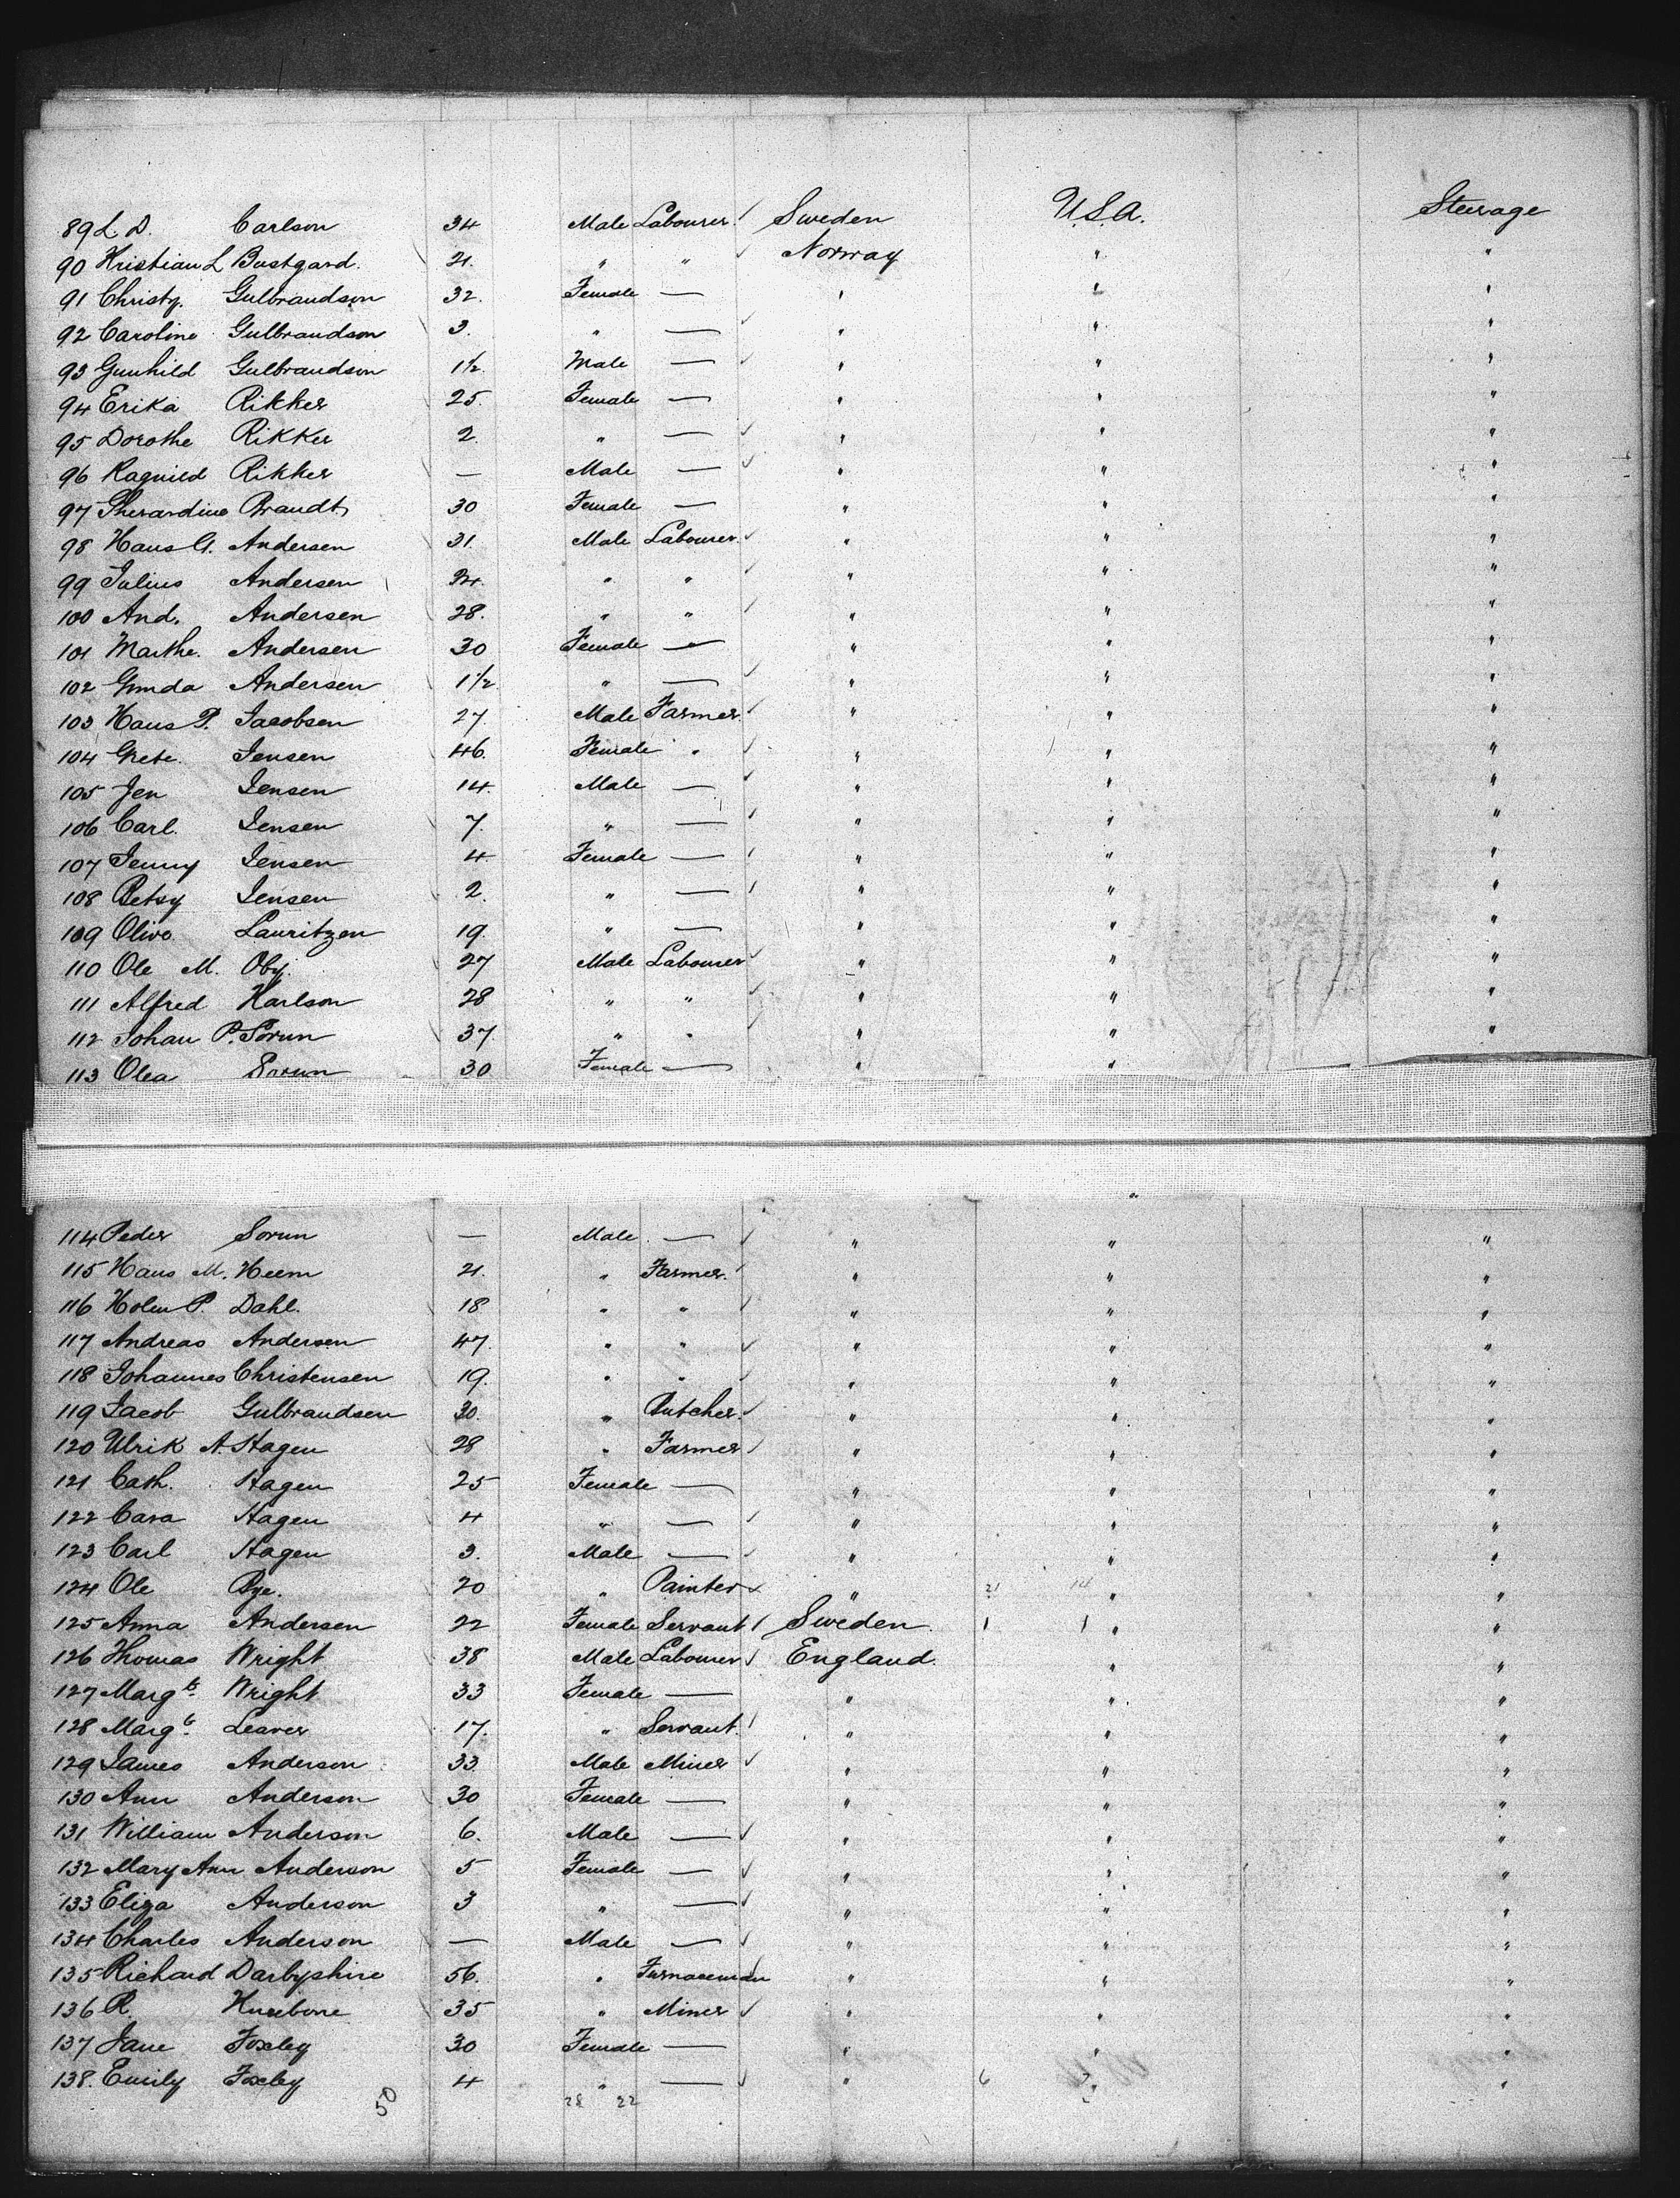 89 L. D. Carlson 34 Male Labourer Sweden U.S.A. Steerage
90 Kristian L Bustgard. 21. " " Norway " "
91 Christy. Gulbrandson 32. Female — " " "
92 Caroline Gulbrandson 3. " — " " "
93 Gunhild Gulbrandson 1½. Male — " " "
94 Erika Rikker 25. Female — " " "
95 Dorothe Rikker 2. " — " " "
96 Ragnild Rikker — Male — " " "
97 Brandt 30 Female — " " "
98 Hans G. Andersen 31. Male Labourer. " " "
99 Julius Andersen 24. " " " " "
100 And. Andersen 28. " " " " "
101 Marthe. Andersen 30 Female — " " "
102 Andersen 1½. " — " " "
103 Hans P. Jacobsen 27 Male Farmer. " " "
104 Grete. Jensen 46. Female " " " "
105 Jen Jensen 14. Male — " " "
106 Carl. Jensen 7. " — " " "
107 Jenny Jensen 4 Female — " " "
108 Betsy Jensen 2. " — " " "
109 Olive. Lauritzen 19. " — " " "
110 Ole M. 27 Male Labourer " " "
111 Alfred Karlson 28 " " " " "
112 Johan P. Sorun 37. " " " " "
113 Olea Sorun 30 Female — " "
"
114 Peder Sorun — Male — " " "
115 Hans M. Heem 21. " Farmer. " " "
116 Holm P. Dahl. 18 " " " " "
117 Andreas Andersen 47. " " " " "
118 Johannes Christensen 19. " " " " "
119 Jacob Gulbrandsen 30. " Butcher. " " "
120 Ulrik A. Hagen 28 " Farmer " " "
121 Cath. Hagen 25 Female — " " "
122 Cara Hagen 4 " — " " "
123 Carl Hagen 3. Male — " " "
124 Ole Bye. 20 " Painter " 21 14 " "
125 Anna Andersen 22 Female Servant Sweden. 1 1 " "
126 Thomas Wright 38 Male Labourer England. " "
127 Margt. Wright 33 Female — " " "
128 Margt. Leaver 17. " Servant. " " "
129 James Anderson 33. Male Miner " " "
130 Ann Anderson 30 Female — " " "
131 William Anderson 6. Male — " " "
132 Mary Ann Anderson 5 Female — " " "
133 Eliza Anderson 3 " — " " "
134 Charles Anderson — Male — " " "
135 Richard Darbyshire 56. " Furnaceman " " "
136 R. Hurebone 35 " Miner " " "
137 Jane Foxley 30 Female — " " "
138. Emily Foxley 4 " — " 6 " "
50 28 22